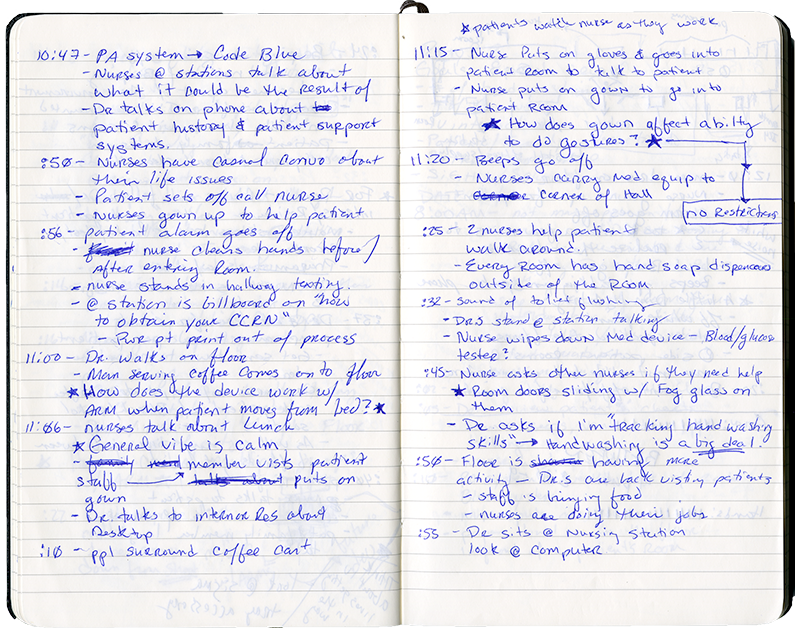 10:47 - PA system → Code Blue
- Nurses @ stations talk about
what it could be the result of
- Dr talks on phone about
patient history & patient support
systems.
:50 - Nurses have casual convo about
their life issues
- Patient sets off call nurse
- Nurses gown up to help patient
:56 - patient alarm goes off
- nurse cleans hands before/
After entering Room.
- nurse stands in hallway texting.
- @ station is billboard on "how
to obtain your CCRN"
- Pwr pt print out of process
11:00 - Dr. walks on floor
- Man serving coffee comes on to floor
★ How does the device work w/
ARM when patient moves from bed? ★
11:06 - nurses talk about Lunch
★ General vibe is calm
- member visits patient
staff → puts on
gown
- Dr. talks to intern or Res about
Desktop
:10 - ppl surround coffee cart
★ patients watch nurse as they work
11:15 - Nurse Puts on gloves & goes into
patient room to talk to patient
- Nurse puts on gown to go into
patient Room
★ How does gown affect ability
to do gestures? ★
11:20 - Beeps go off
- Nurses carry med equip to
corner of Hall
no Restrictions
:25 - 2 nurses help patient
walk around.
- Every Room has hand soap dispensers
outside of the Room
:32 - sound of toilet flushing
- Drs stand @ station talking
- Nurse wipes down Med device - Blood/glucose
tester?
:45 - Nurse asks other nurses if they need help
★ Room doors sliding w/ Fog glass on
them
- Dr asks if I'm "tracking handwashing
skills" → Handwashing is a big deal!
:50 - Floor is having more
activity - Drs are back visting patients
- staff is bringing food
- nurses are doing their jobs
:55 - Dr sits @ Nursing station
look @ computer